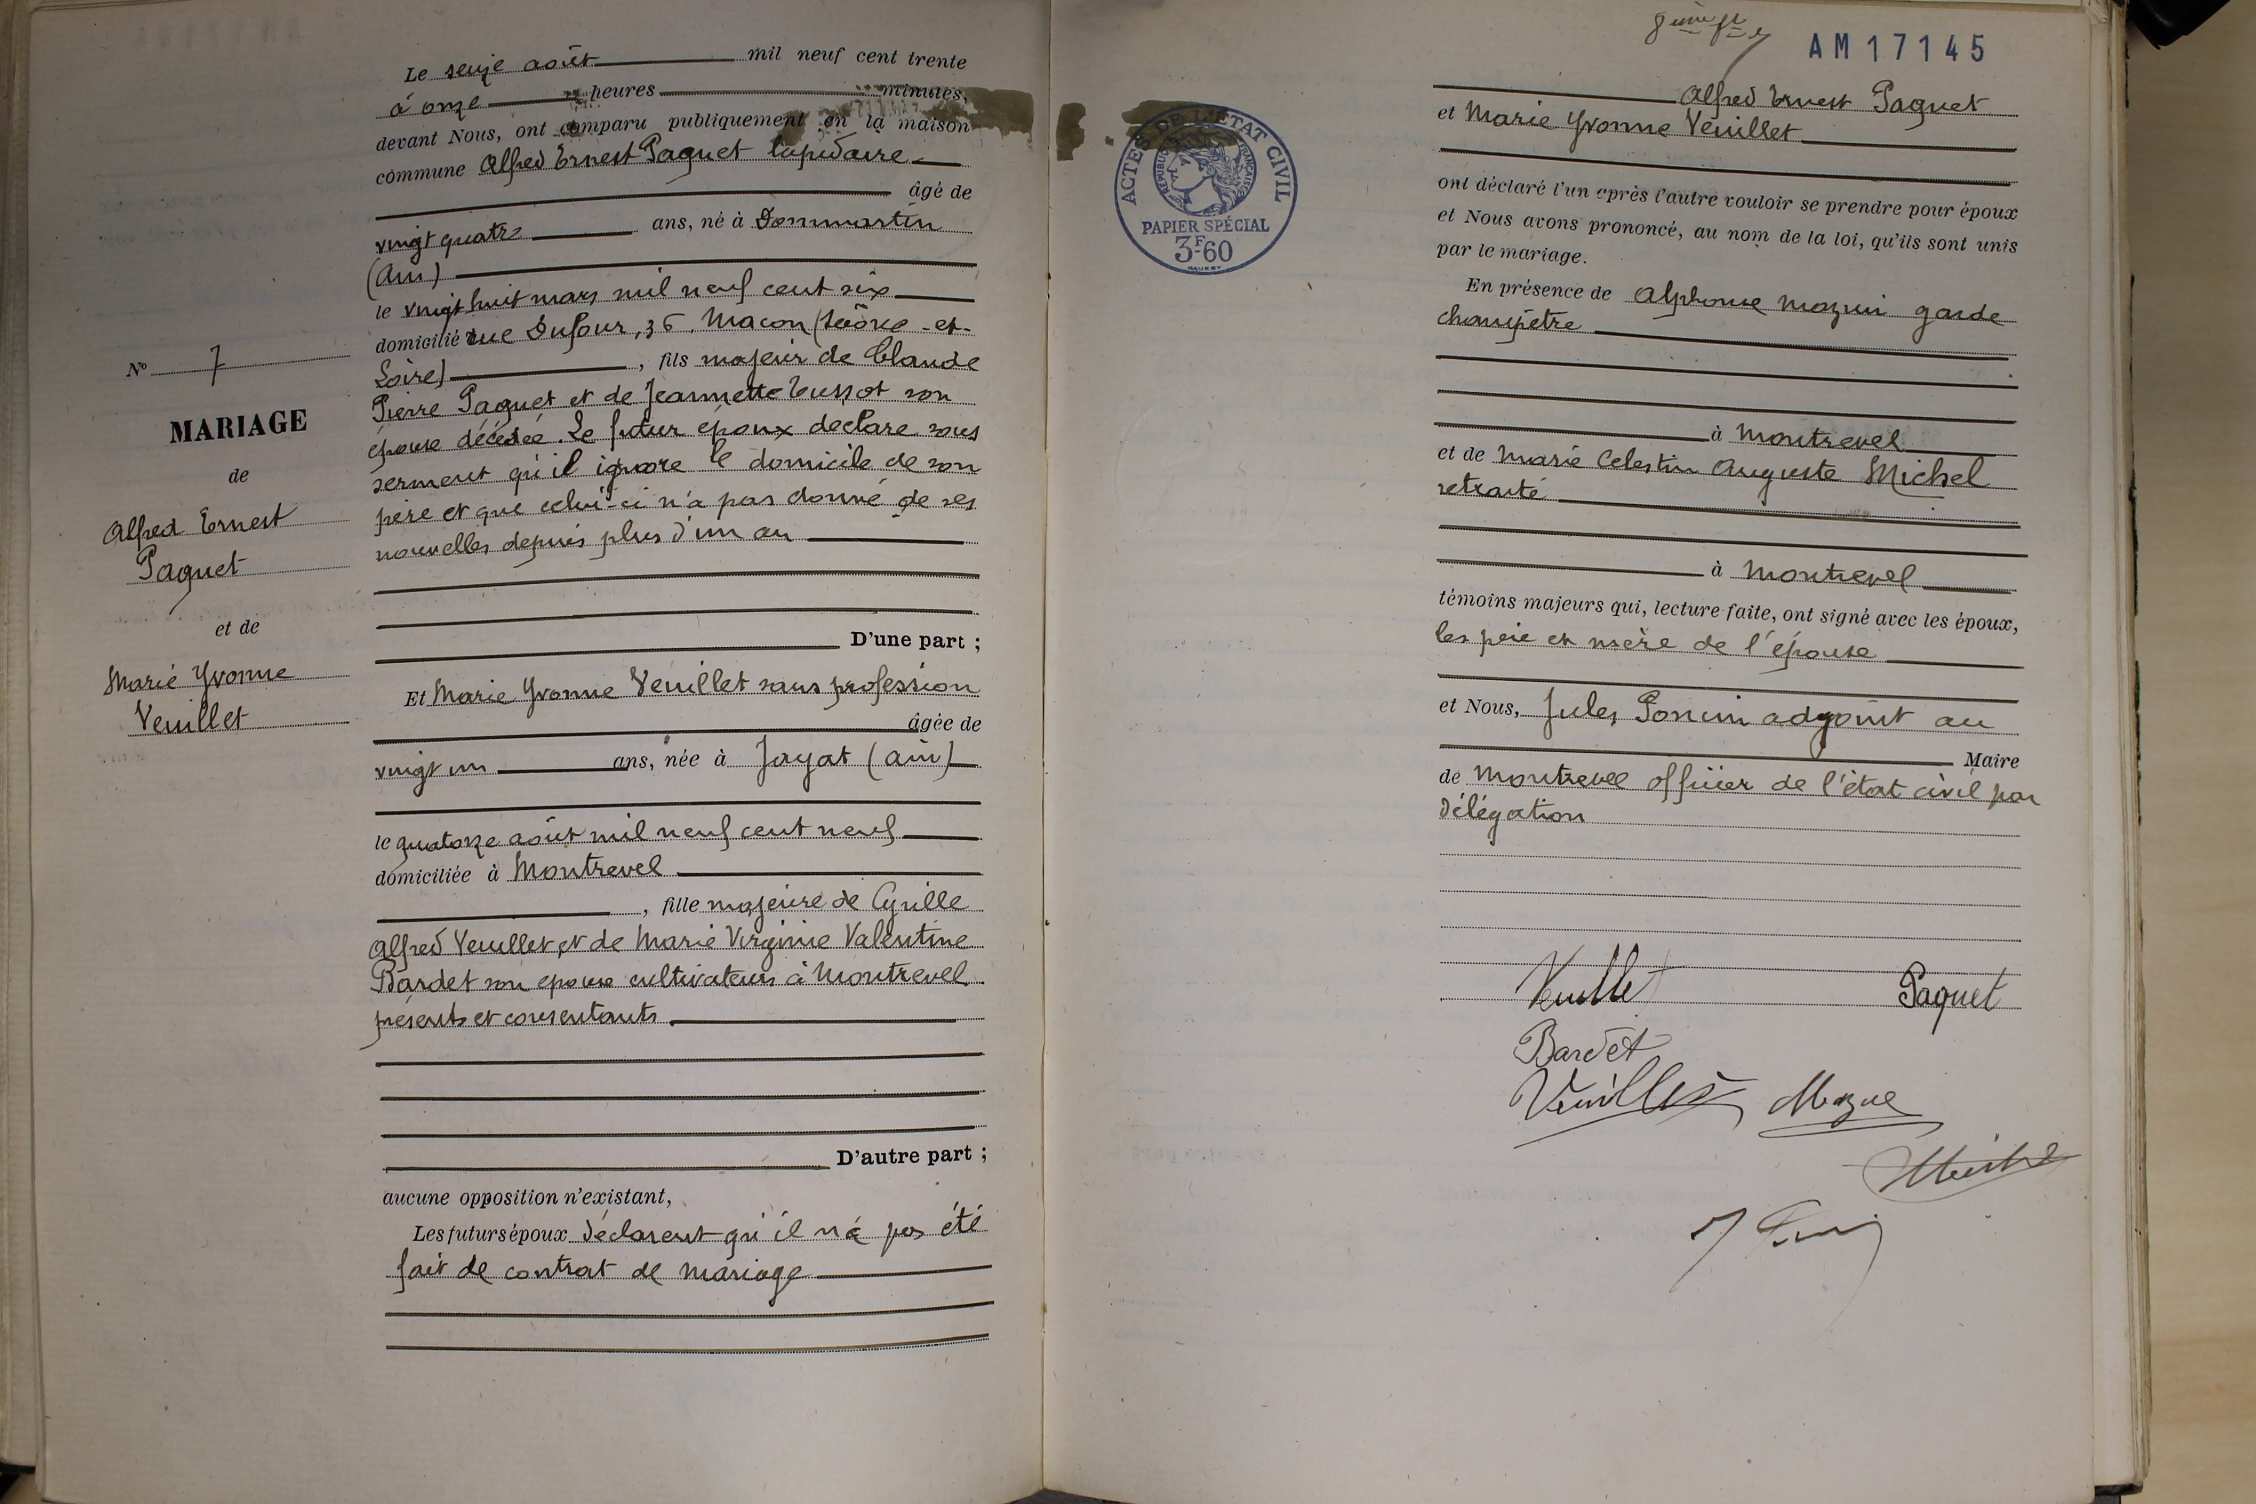 Le seize août mil neuf cent trente
à onze heures minutes,
devant Nous, ont comparu publiquement en la maison
commune Alfred Ernest Paquet lapidaire
âgé de
vingt quatre ans, né à Dommartin
(Ain)
le vingt huit mars mil neuf cent six
domicilié rue Dufour, 36 Macon (Saône-et-
Loire), fils majeur de Claude
Pierre Paquet et de Jeannette Tussot son
épouse décédée. Le futur époux declare sous
serment qu'il ignore le domicile de son
père et que celui-ci n'a pas donné de ses
nouvelles depuis plus d'un an
D'une part ;
Et Marie Yvonne Veuillet sans profession
âgée de
vingt un ans, née à Jayat (Ain)
le quatorze août mil neuf cent neuf
domiciliée à Montrevel
, fille majeure de Cyrille
Alfred Veuillet et de Marie Virginie Valentine
Bardet son epouse cultivateurs à Montrevel
présents et consentants
D'autre part ;
aucune opposition n'existant,
Les futurs époux déclarent qu'il n'a pas été
fait de contrat de mariage
N° 7
MARIAGE
de
Alfred Ernest
Paquet
et de
Marie Yvonne
Veuillet
ACTES DE L'ETAT CIVIL
REPUBLIQUE FRANÇAISE
PAPIER SPÉCIAL
3F60
AM17145
Alfred Ernest Paquet
et Marie Yvonne Veuillet
ont déclaré l'un après l'autre vouloir se prendre pour époux
et Nous avons prononcé, au nom de la loi, qu'ils sont unis
par le mariage.
En présence de Alphonse Mazuir garde
champêtre
à Montrevel
et de Marie Celestin Auguste Michel
retraité
à Montrevel
témoins majeurs qui, lecture faite, ont signé avec les époux,
les père et mère de l'épouse
et Nous, Jules Poncin adjoint au
Maire
de Montrevel officier de l'état civil par
délégation
Veuillet Paquet
Bardet
Veuillet
Michel